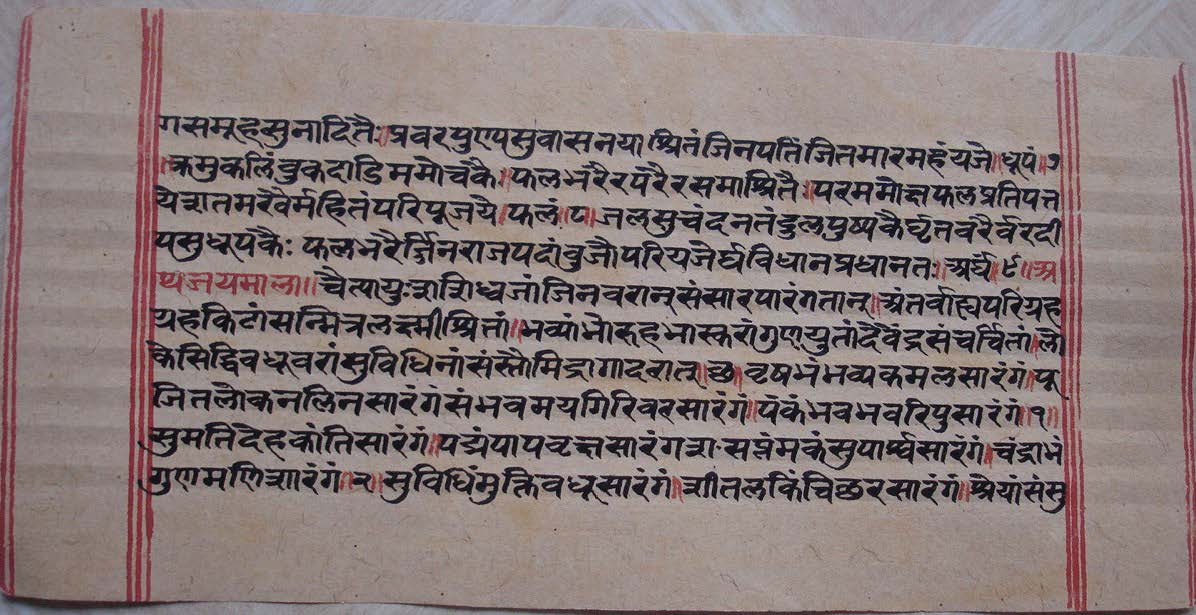 गसमूहसुनादितैः॥प्रवरपुण्पसुवासनयाश्रितंजिनपतिंजितमारमहंयजे॥धूपं॥७
॥क्रमुकलिंवुकदाडिममोचकैः॥फलभरैरपरैरसमाश्रितैः॥परममोक्षफलप्रतिपत्त
येन्नातमरवैर्महितंपरिपूजये॥फलं॥८॥जलसुचंदनतंडुलपुष्पकैर्घृतवरैर्वरदी
पसुधूपकैः॥फलभरैर्ज्जिनराजपदांवुजोपरियजेर्घविधानप्रधानतः॥अर्घं॥९॥अ
थजयमाला॥चैत्यायुःशाशिध्वजांजिनवरान्संसारपारंगतान्॥अंतर्वाह्यपरिग्रह
ग्रहकिटांसन्मित्रलक्ष्मीश्रितां॥भव्यांभोरुहभास्करांगुणयुतांदेवेंद्रसंचर्चितां॥लो
केसिद्धिवधूवरांसुविधिनांसंस्तौमिद्रागादरात्॥छ॥वृषभंभव्यकमलसारंगं॥पू
जितलोकनलिनसारंगंसंभवमयगिरिवरसारंगं॥पंकंभवभवरिपुसारंगं॥१॥
सुमतिंदेहकांतिसारंगं॥पद्मंपापवृक्षसारंगश॰सप्तंमकंसुपार्श्वसारंगं॥चंद्राभं
गुणमणिशारंगं॥२॥सुविधिंमुक्तिवधूसारंगं॥शीतलकिंचिछरसारंगं॥श्रेयांसंसु